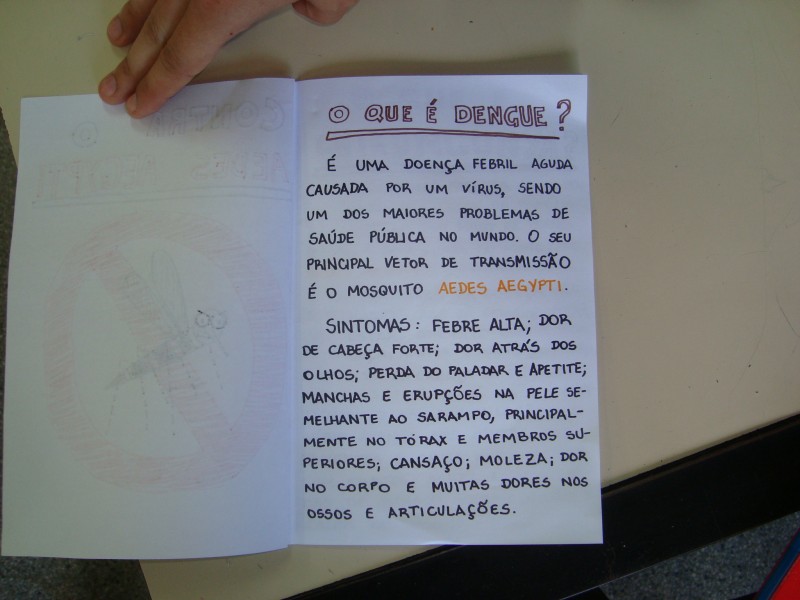 O QUE É DENGUE?
É UMA DOENÇA FEBRIL AGUDA
CAUSADA POR UM VÍRUS, SENDO
UM DOS MAIORES PROBLEMAS DE
SAÚDE PÚBLICA NO MUNDO. O SEU
PRINCIPAL VETOR DE TRANSMISSÃO
É O MOSQUITO AEDES AEGYPTI.
SINTOMAS: FEBRE ALTA; DOR
DE CABEÇA FORTE; DOR ATRÁS DOS
OLHOS; PERDA DO PALADAR E APETITE;
MANCHAS E ERUPÇÕES NA PELE SE-
MELHANTE AO SARAMPO, PRINCIPAL-
MENTE NO TÓRAX E MEMBROS SU-
PERIORES; CANSAÇO; MOLEZA; DOR
NO CORPO E MUITAS DORES NOS
OSSOS E ARTICULAÇÕES.